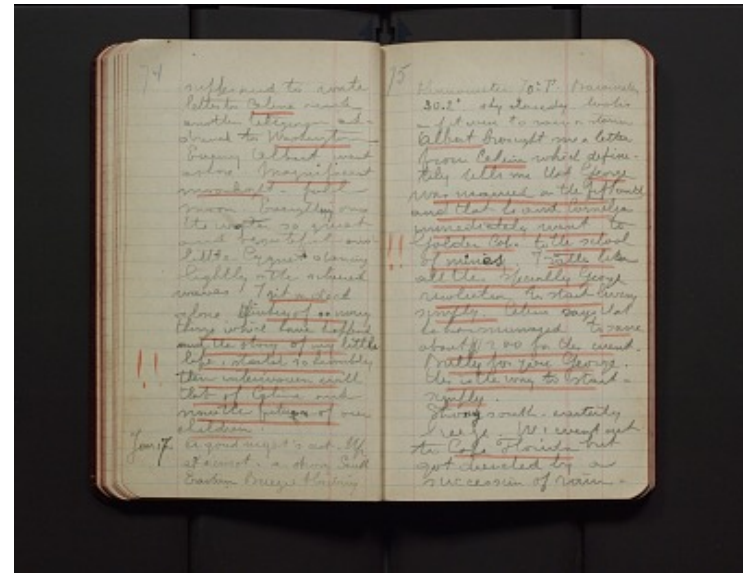 74
suffer and to write
letter to Celine
another telegram ad-
dressed to Washington
Evening Albert went
ashore. Magnificent
moonlight - full
moon. Everything on
the water so great
and beautiful and
little Cygnet dancing
lightly on the silvered
waves! I sit on deck
alone thinking of so many
things which have happened
and the story of my little
life, started so humbly
then interwoven with
that of Celine and
now the future of our
children.
Jan 17. A good night's rest. Up
at sunrise. a strong South
Eastern Breeze blowing
75
Thermometer 70° F Barometer
30.2" sky cloudy looks
as if it were to rain
Albert brought me a letter
from Celine which defini-
tely tells me that George
was married on the fifteenth
and that he and Cornelia
immediately went to
Golden Col. to the school
of mines. I rather like
all this specially George
resolution to start living
simply. Celine says that
he has managed to save
about $1200 for this event.
Bully for you George.
this is the way to start -
simply.
Strong south-easterly
breeze. We went out
to Cape Florida but
got drenched by a
succession of rain-